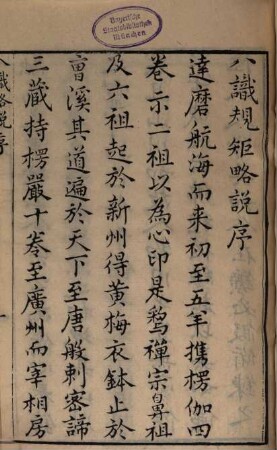 Bayerische
Staatsbibliothek
München
八識規矩略說序
達磨航海而来初至五年攜楞伽四
卷示二祖以為心印是為禪宗鼻祖
及六祖起於新州得黃梅衣鉢止於
曹溪其道遍於天下至唐般剌密諦
三藏持楞嚴十卷至廣州而宰相房
八識略說序